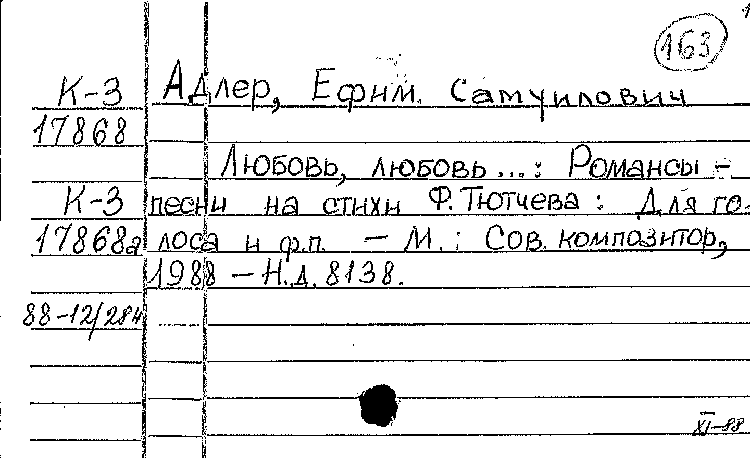 163
К-3 Адлер, Ефим. Самуилович
17868
Любовь, любовь...: Романсы -
К-3 песни на стихи Ф. Тютчева: Для го-
17868а лоса и ф.п. — М.: Сов. композитор,
1988 — Н.д. 8138.
88-12/284
XI-88